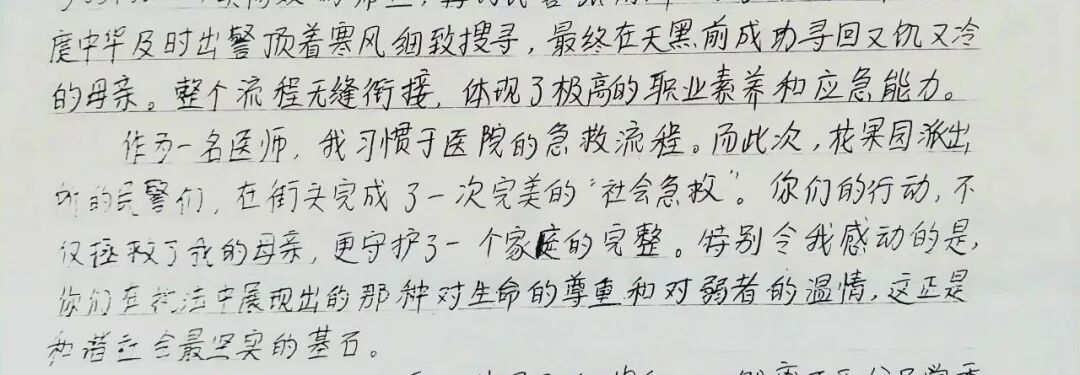 庹中华及时出警顶着寒风细致搜寻，最终在天黑前成功寻回又饥又冷
的母亲。整个流程无缝衔接，体现了极高的职业素养和应急能力。
作为一名医师，我习惯于医院的急救流程。而此次，花果园派出
所的民警们，在街头完成了一次完美的“社会急救”。你们的行动，不
仅拯救了我的母亲，更守护了一个家庭的完整。特别令我感动的是，
你们在执法中展现出的那种对生命的尊重和对弱者的温情，这正是
和谐社会最坚实的基石。